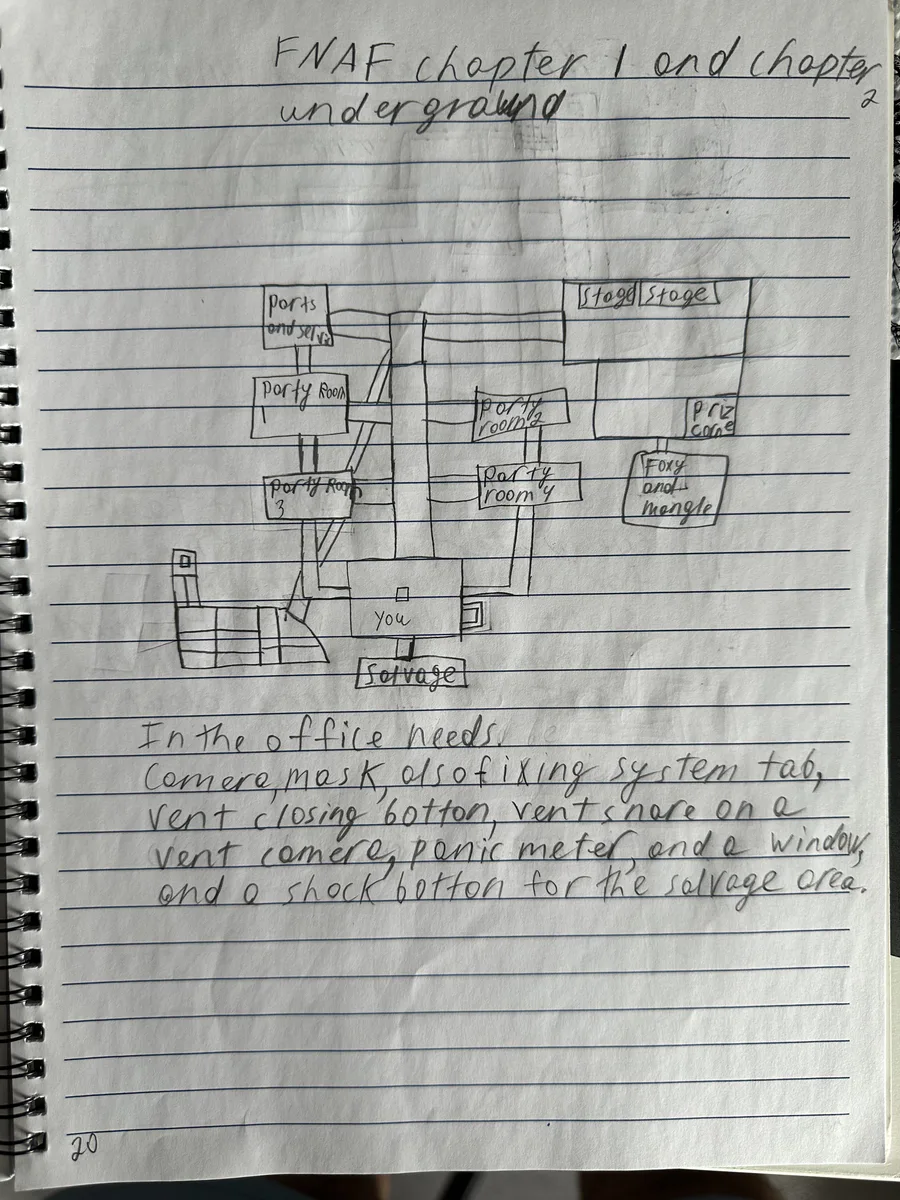 FNAF chapter 1 and chapter
2
underground
Stage Stage
Parts
and serviz
Party Room
1
Party
room 2
Priz
corne
Party Room
3
Party
room 4
Foxy
and
mangle
You
Salvage
In the office needs.
Camera, mask, also fixing system tab,
vent closing botton, vent snare on a
vent camera, panic meter, and a window,
and a shock botton for the salvage area.
20